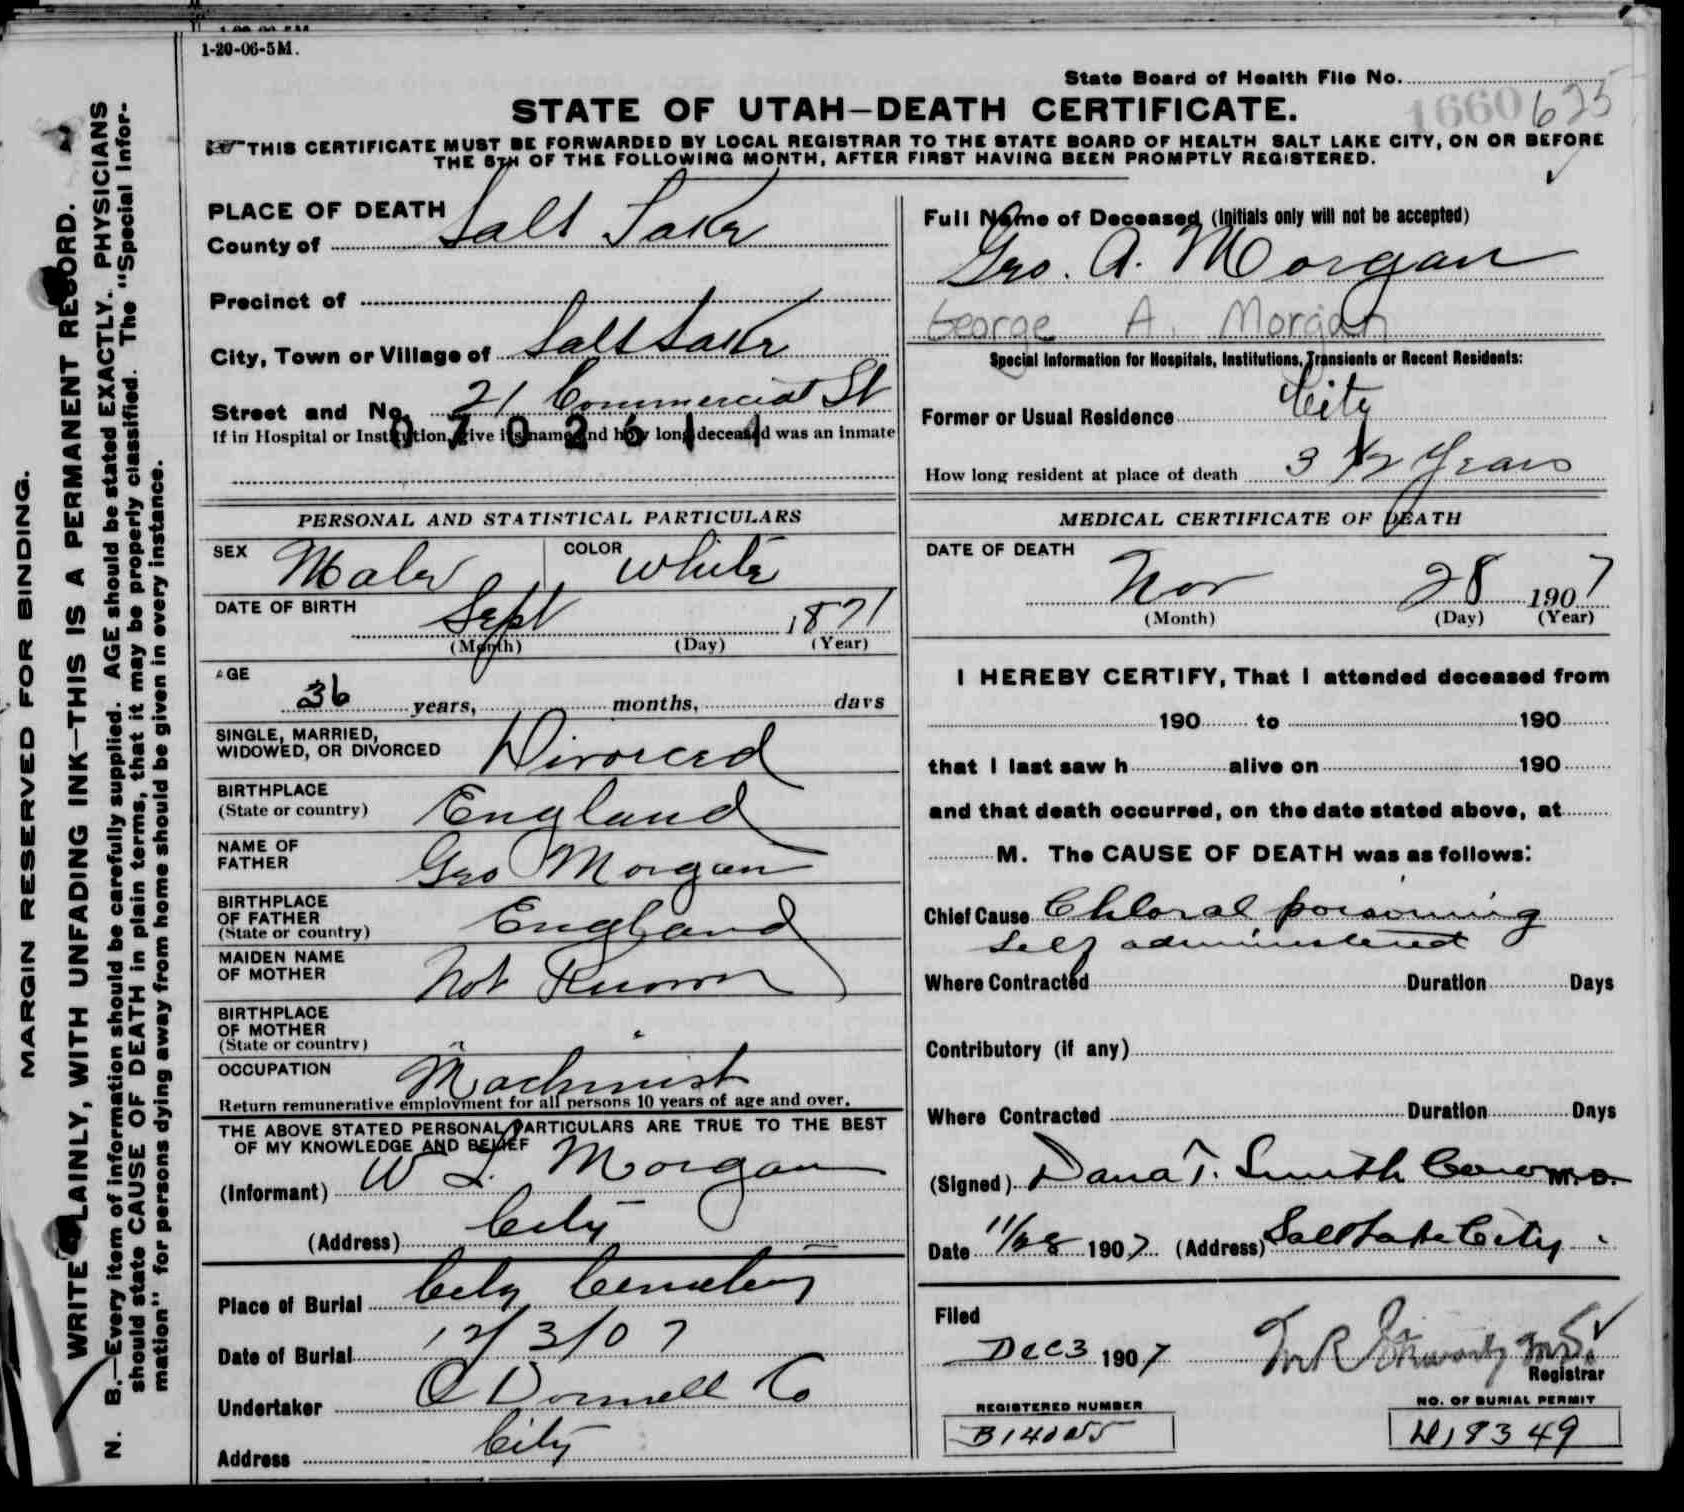 1-20-06-5M.
State Board of Health File No.
1660 625
STATE OF UTAH—DEATH CERTIFICATE.
THIS CERTIFICATE MUST BE FORWARDED BY LOCAL REGISTRAR TO THE STATE BOARD OF HEALTH SALT LAKE CITY, ON OR BEFORE
THE 5TH OF THE FOLLOWING MONTH, AFTER FIRST HAVING BEEN PROMPTLY REGISTERED.
MARGIN RESERVED FOR BINDING.
WRITE PLAINLY, WITH UNFADING INK—THIS IS A PERMANENT RECORD.
N. B.—Every item of information should be carefully supplied. AGE should be stated EXACTLY. PHYSICIANS
should state CAUSE OF DEATH in plain terms, that it may be properly classified. The "Special Infor-
mation" for persons dying away from home should be given in every instance.
PLACE OF DEATH
County of Salt Lake
Precinct of
City, Town or Village of Salt Lake
Street and No. 21 Commercial St
If in Hospital or Institution, give its name and how long deceased was an inmate
0702614
PERSONAL AND STATISTICAL PARTICULARS
SEX Male COLOR White
DATE OF BIRTH Sept 1871
(Month) (Day) (Year)
AGE 36 years, months, days
SINGLE, MARRIED,
WIDOWED, OR DIVORCED Divorced
BIRTHPLACE
(State or country) England
NAME OF
FATHER Geo Morgan
BIRTHPLACE
OF FATHER
(State or country) England
MAIDEN NAME
OF MOTHER Not Known
BIRTHPLACE
OF MOTHER
(State or country) " "
OCCUPATION Machinist
Return remunerative employment for all persons 10 years of age and over.
THE ABOVE STATED PERSONAL PARTICULARS ARE TRUE TO THE BEST
OF MY KNOWLEDGE AND BELIEF
(Informant) W L. Morgan
(Address) City
Place of Burial City Cemetery
Date of Burial 12/3/07
Undertaker O Donnell Co
Address City
Full Name of Deceased (Initials only will not be accepted)
Geo. A. Morgan
George A. Morgan
Special Information for Hospitals, Institutions, Transients or Recent Residents:
Former or Usual Residence City
How long resident at place of death 3 1/2 Years
MEDICAL CERTIFICATE OF DEATH
DATE OF DEATH
Nov 28 1907
(Month) (Day) (Year)
I HEREBY CERTIFY, That I attended deceased from
190 to 190
that I last saw h alive on 190
and that death occurred, on the date stated above, at
M. The CAUSE OF DEATH was as follows:
Chief Cause Chloral poisoning
Self administered
Where Contracted Duration Days
Contributory (if any)
Where Contracted Duration Days
(Signed) Dana T. Smith Coroner M. D.
Date 11/28 1907 (Address) Salt Lake City
Filed
Dec 3 1907
Registrar
REGISTERED NUMBER
NO. OF BURIAL PERMIT